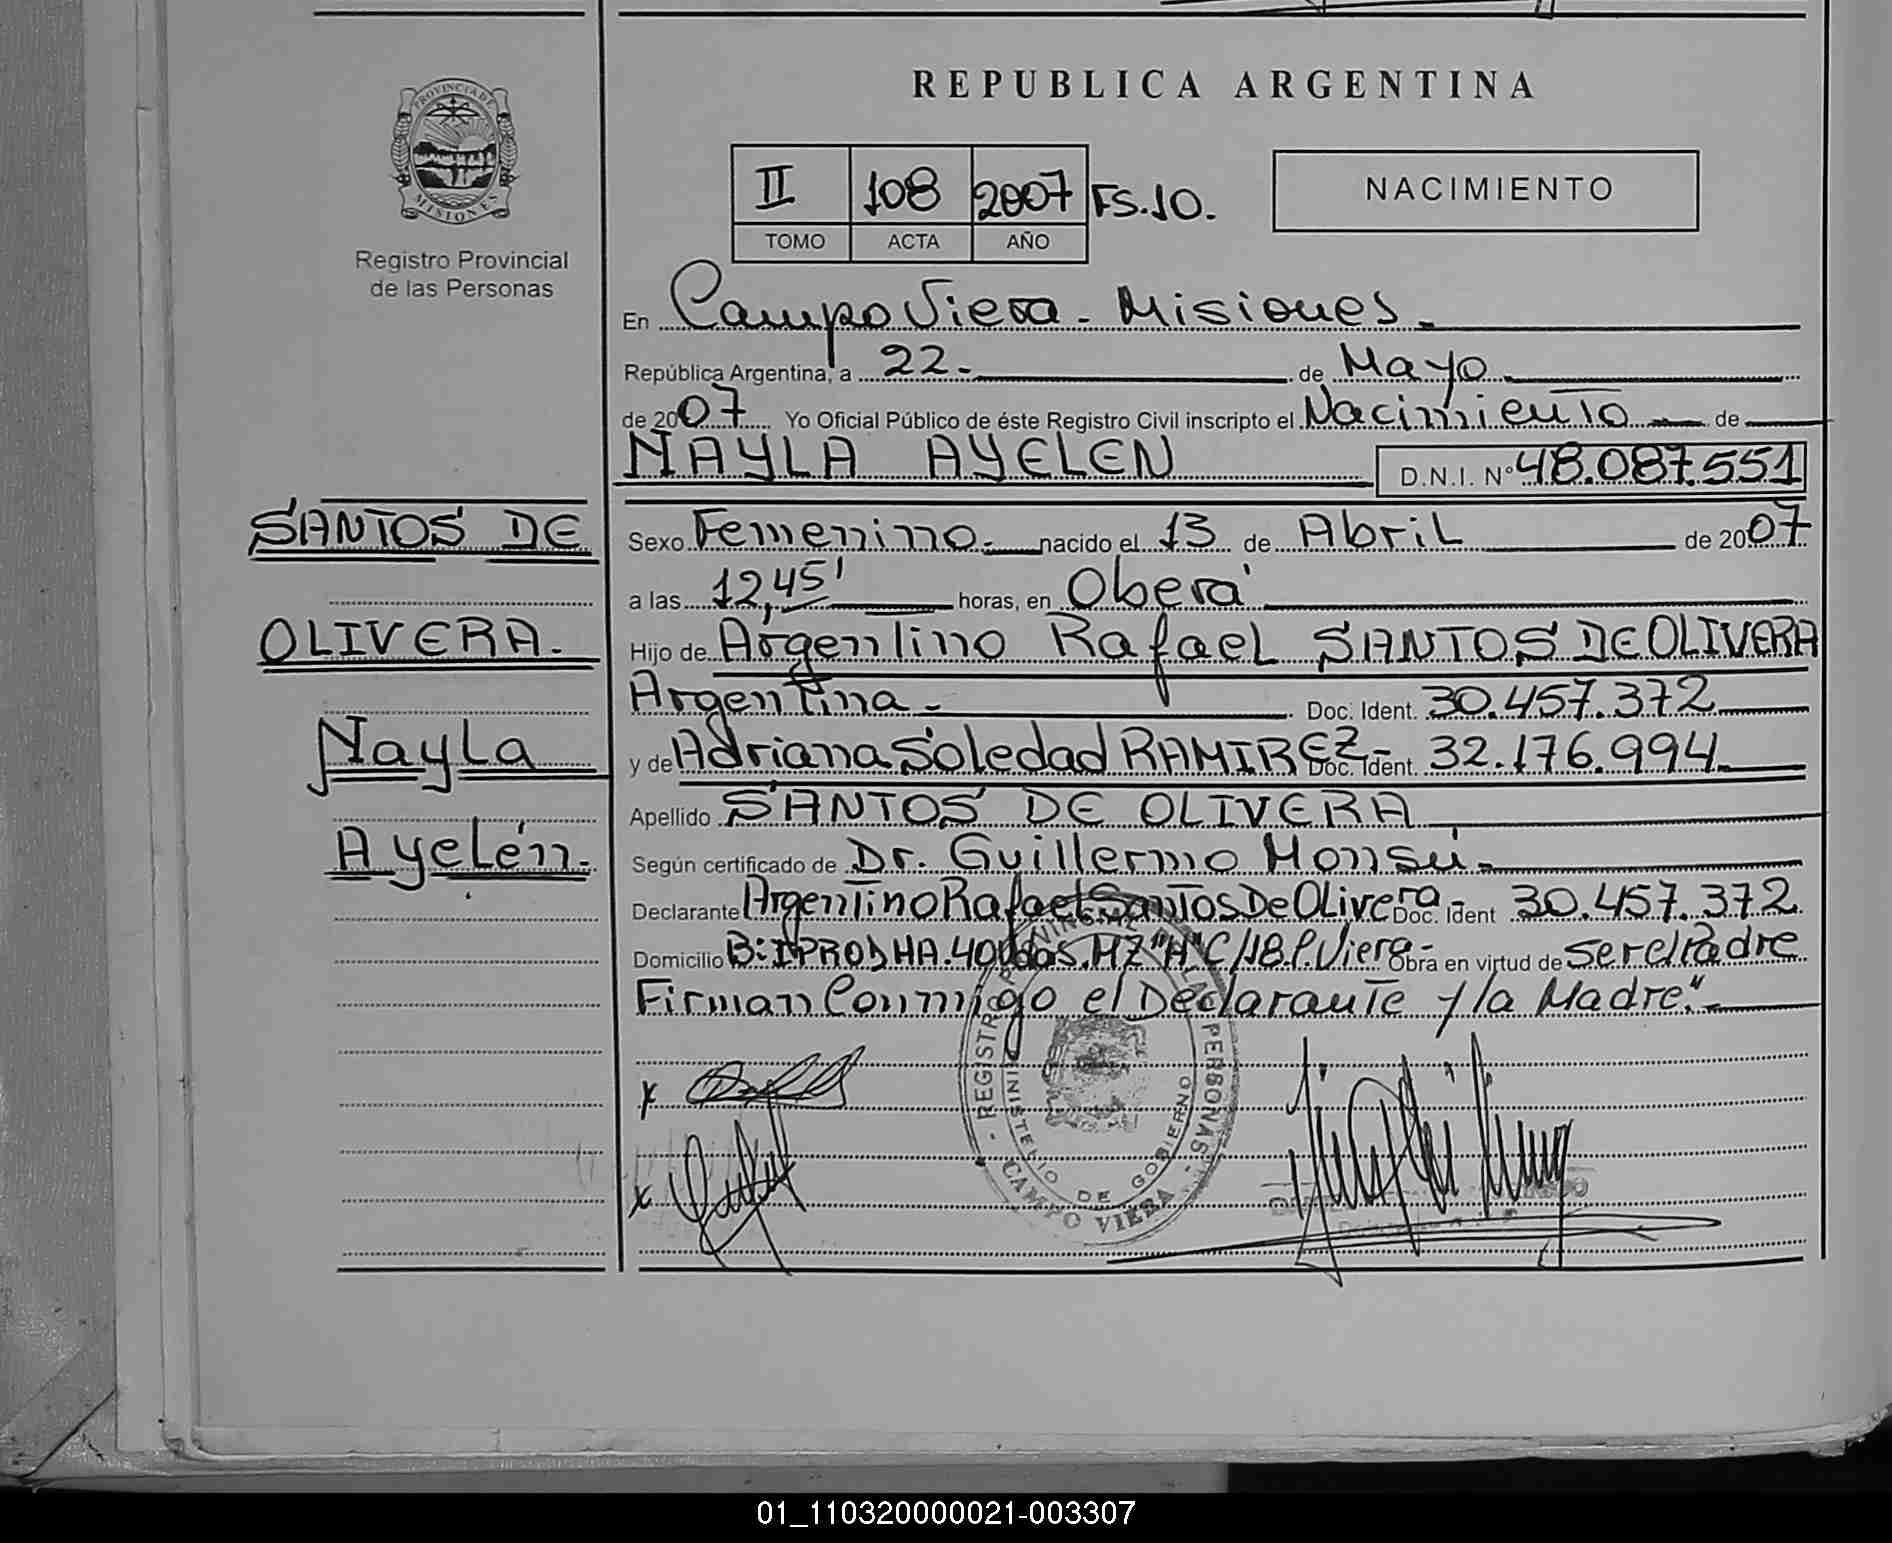 REPUBLICA ARGENTINA
PROVINCIA DE
MISIONES
Registro Provincial
de las Personas
II 108 2007 FS.10.
TOMO ACTA AÑO
NACIMIENTO
En Campo Viera - Misiones.
República Argentina, a 22.- de Mayo
de 2007 Yo Oficial Público de éste Registro Civil inscripto el Nacimiento de
NAYLA AYELEN D.N.I. Nº 48.087.551
SANTOS DE
OLIVERA.
Nayla
Ayelén.
Sexo Femenino.- nacido el 13 de Abril de 2007
a las 12,45' horas, en Oberá
Hijo de Argentino Rafael SANTOS DE OLIVERA
Argentina.- Doc. Ident. 30.457.372
y de Adriana Soledad RAMIREZ- Doc. Ident. 32.176.994
Apellido SANTOS DE OLIVERA
Según certificado de Dr. Guillermo Monsú.-
Declarante Argentino Rafael Santos De Olivera- Doc. Ident 30.457.372
Domicilio B: IPRODHA. 40 Vdas. MZ "A" C/18. C. Viera- Obra en virtud de ser el Padre
Firman Conmigo el Declarante y la Madre".-
x
x
REGISTRO PROVINCIAL DE LAS PERSONAS
MINISTERIO DE GOBIERNO
CAMPO VIERA
01_110320000021-003307